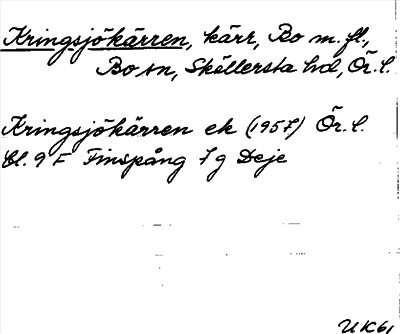 Kringsjökärren, kärr, Bo m. fl.,
Bo sn, Sköllersta hd, Ör. l.
Kringsjökärren ek (1957) Ör. l.
bl. 9 F Finspång 7 g Deje
UK61